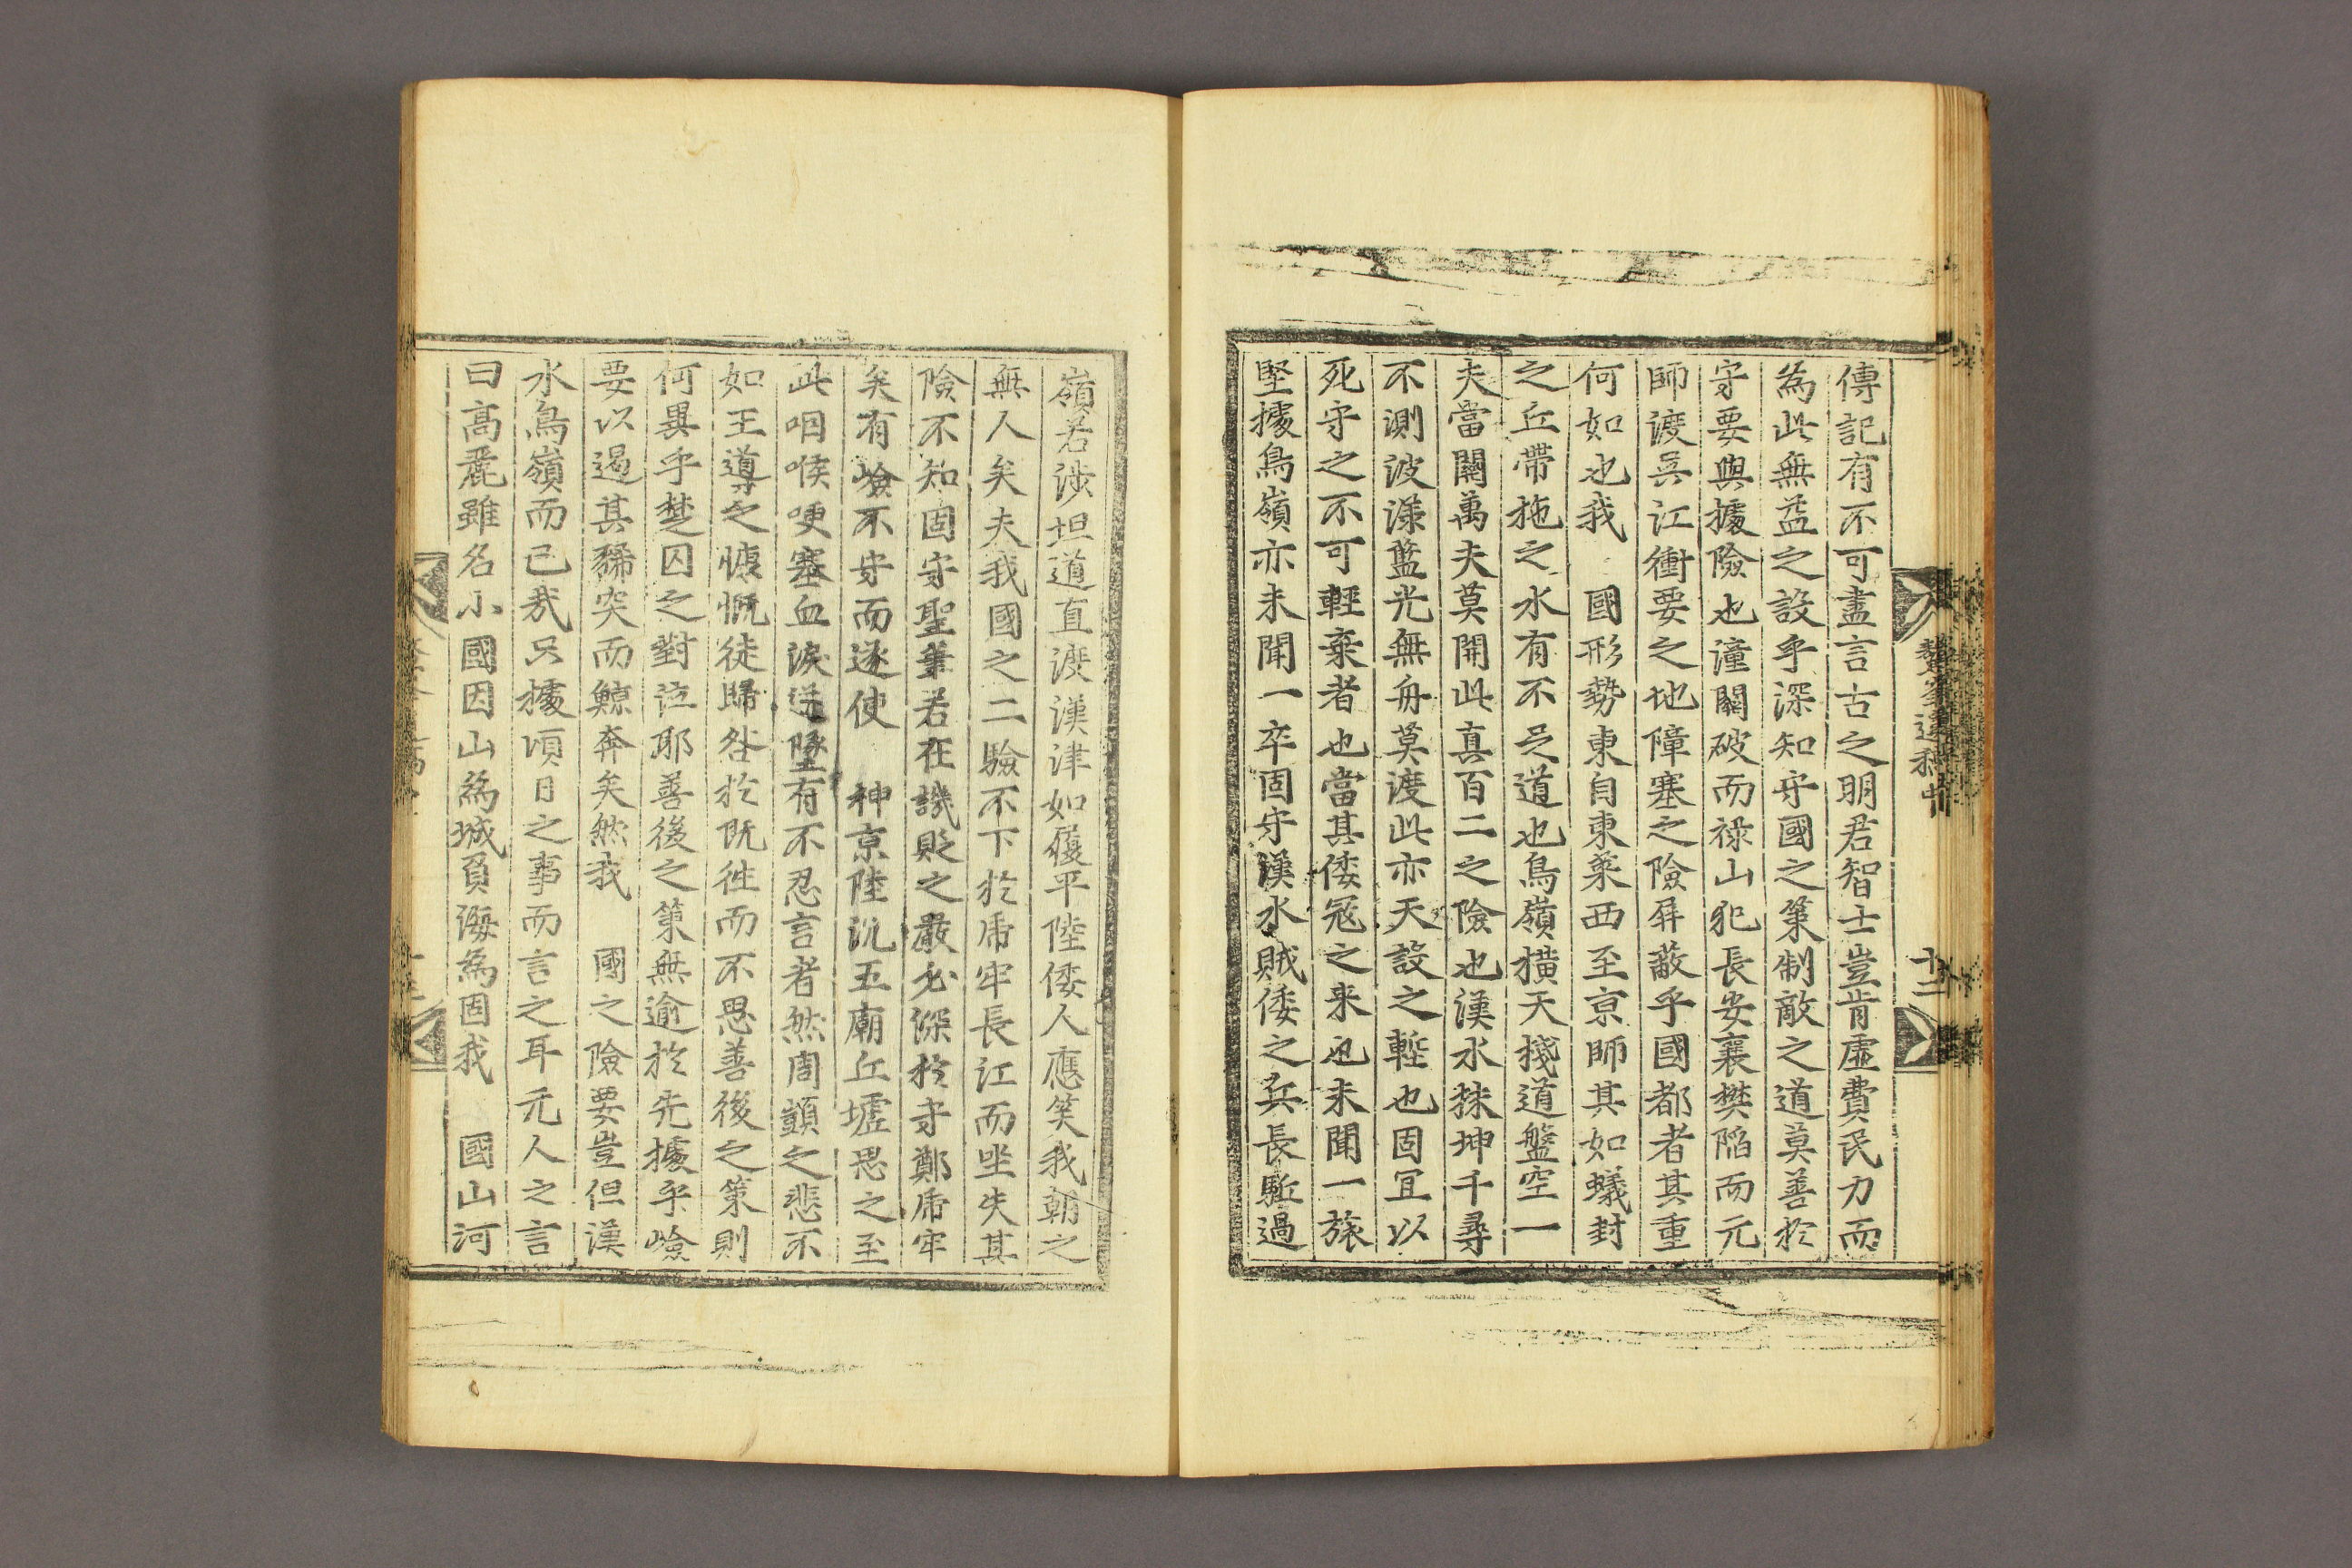 傳記有不可盡言古之明君智士豈肯虛費民力而
為此無益之設乎深知守國之策制敵之道莫善於
守要與據險也潼關破而祿山犯長安襄樊陷而元
師渡吳江衝要之地障塞之險屛蔽乎國都者其重
何如也我 國形勢東自東萊西至京師其如蟻封
之丘帶拖之水有不足道也鳥嶺橫天棧道盤空一
夫當關萬夫莫開此真百二之險也漢水抹坤千尋
不測波漾藍光無舟莫渡此亦天設之塹也固宜以
死守之不可輕棄者也當其倭冦之来也未聞一旅
堅據鳥嶺亦未聞一卒固守漢水賊倭之兵長駈過
十二
嶺若涉坦道直渡漢津如履平陸倭人應笑我朝之
無人矣夫我國之二驗不下於虎牢長江而坐失其
險不知固守聖筆若在譏貶之嚴必深於守鄭虎牢
矣有嶮不守而遂使 神京陸沉五廟丘墟思之至
此咽喉哽塞血淚迸墜有不忍言者然周顗之悲不
如王導之慷慨徒歸咎於既徃而不思善後之策則
何異乎楚囚之對泣耶善後之策無逾於先據乎嶮
要以遏其豨突而鯨奔矣然我 國之險要豈但漢
水鳥嶺而已哉只據頃日之事而言之耳元人之言
曰高麗雖名小國因山為城負海為固我 國山河